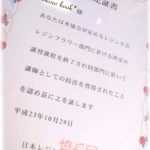 定証書
book"様
あなたは本協会が定めるレジン又は
レジンフラワー部門に於ける所定の
講習課程を終了され同部門に於いて
講師としての技法を習得されたこと
を認め茲に之を証します
平成23年10月29日
日本レジン